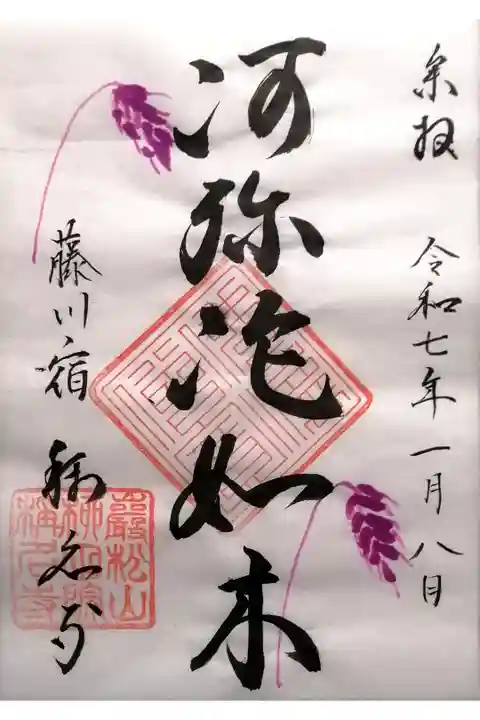 奉拝 令和七年一月八日
阿弥陀如来
藤川宿 称名寺
巌松山
柳相院
称名寺